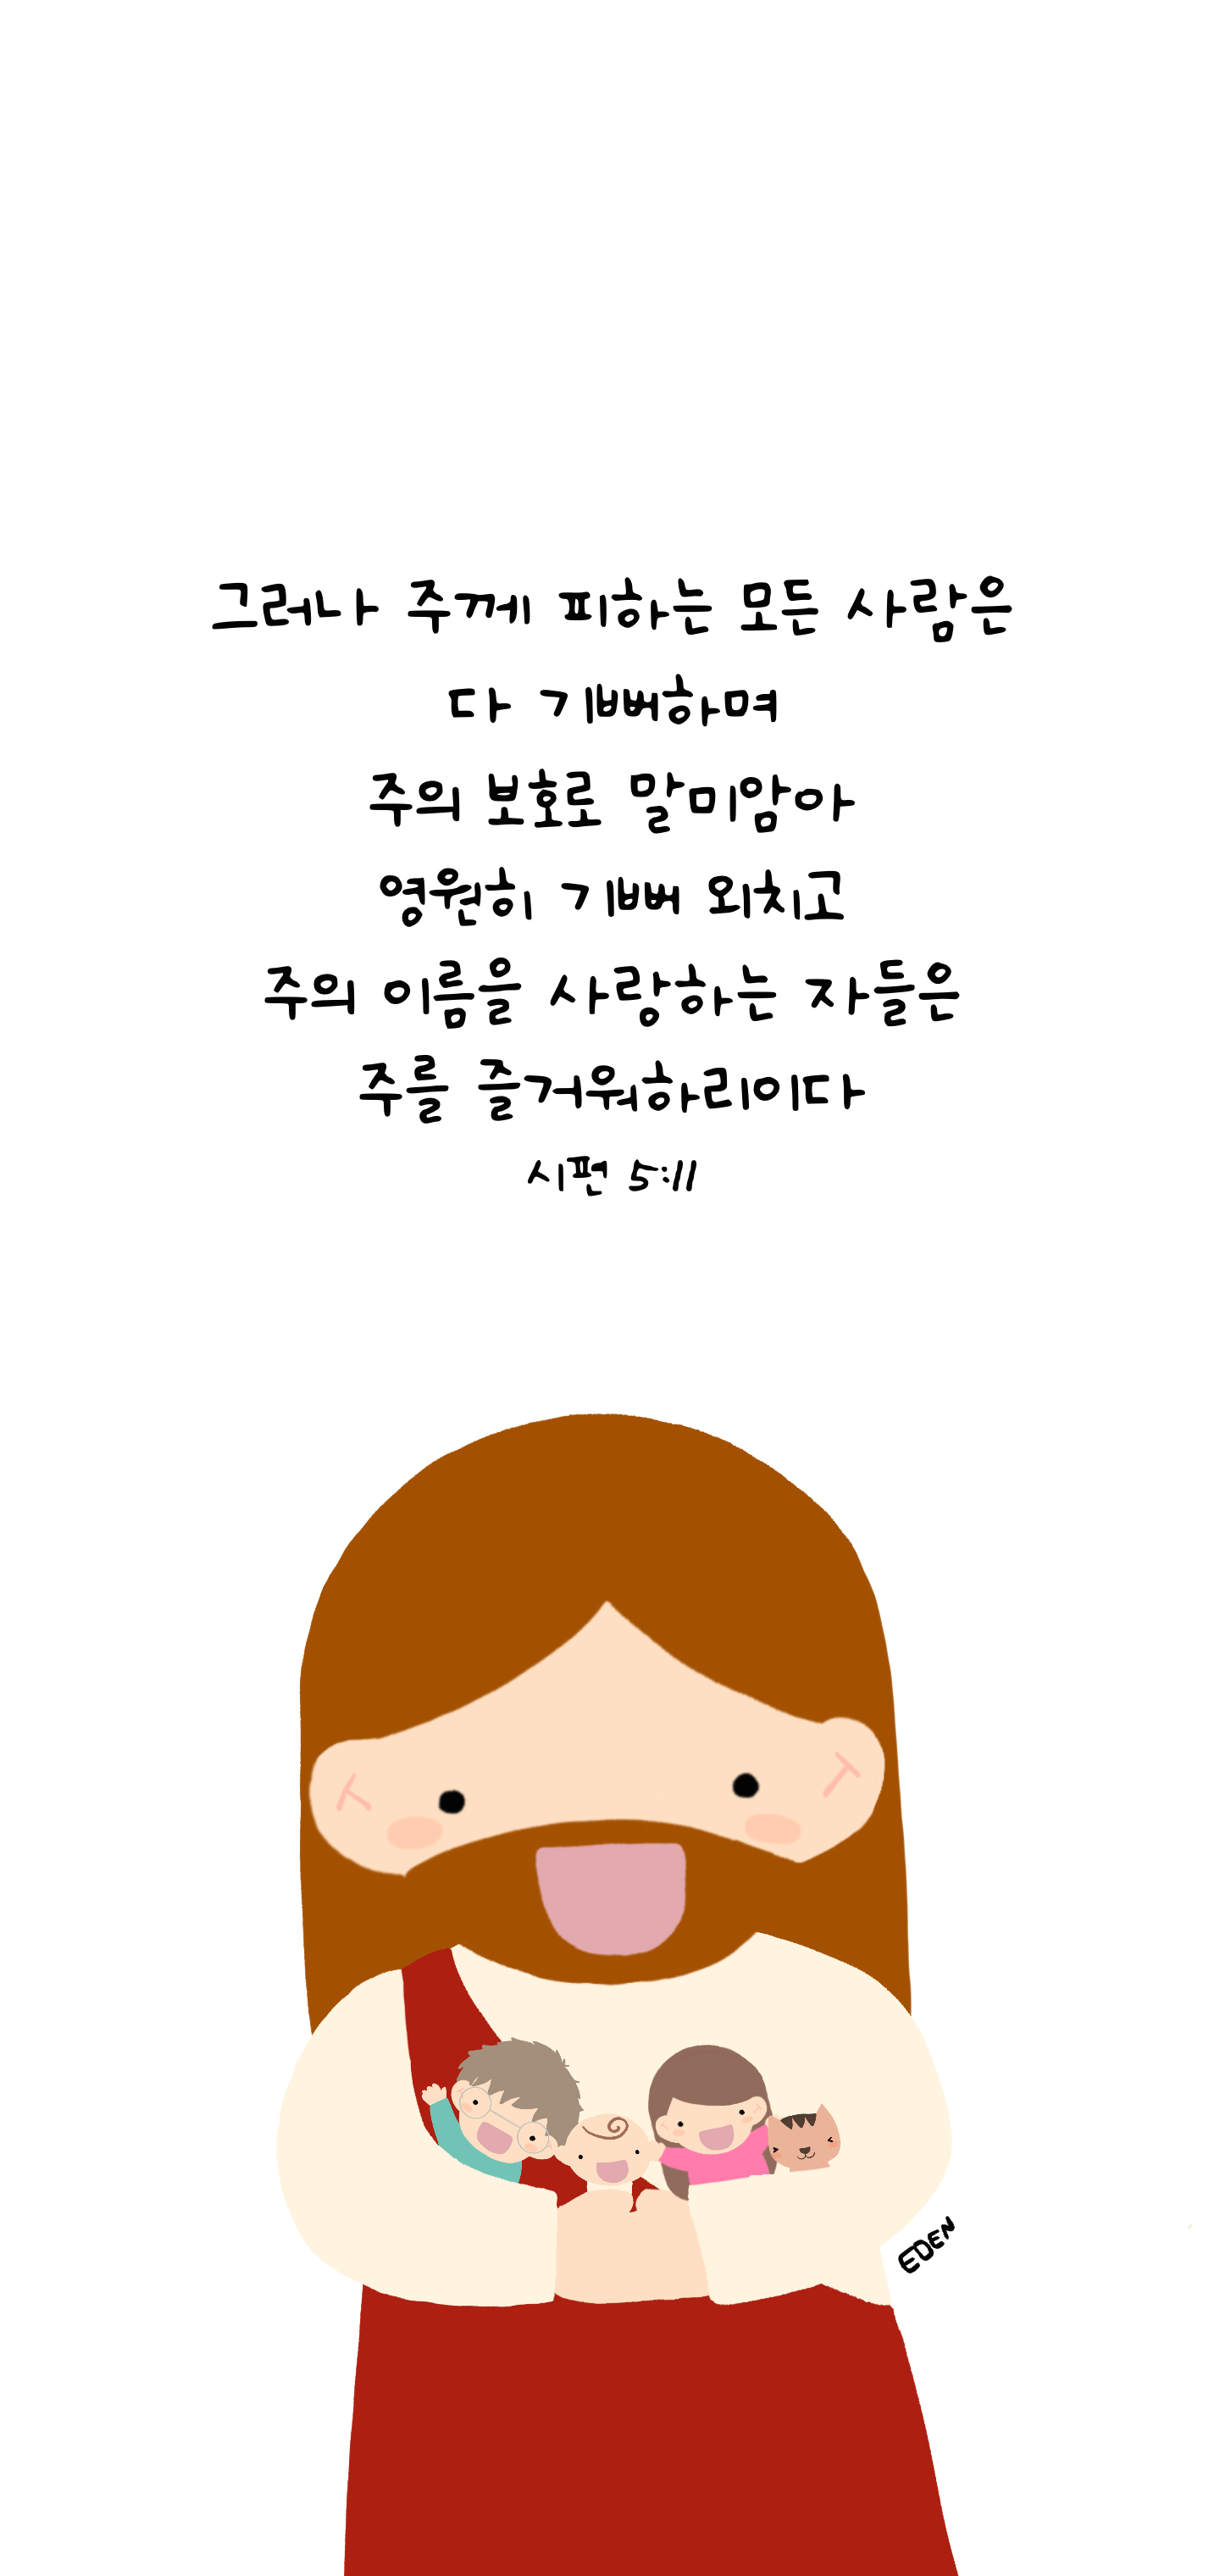 그러나 주께 피하는 모든 사람은
다 기뻐하며
주의 보호로 말미암아
영원히 기뻐 외치고
주의 이름을 사랑하는 자들은
주를 즐거워하리이다
시편 5:11
EDEN